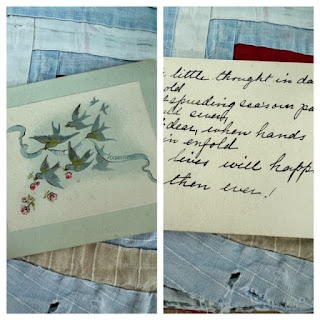 little thought in da
old
seasons pa
dear, when hands
in enfold
lives will happ
then ever!